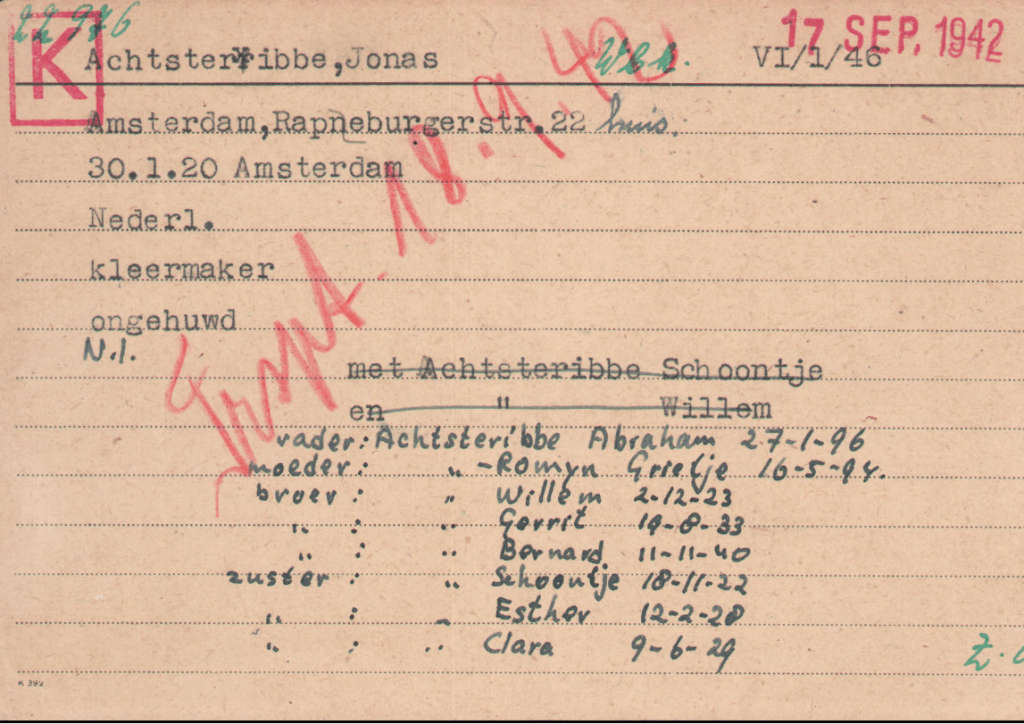 22976
17 SEP. 1942
K
Achtsterribbe,Jonas VI/1/46
Amsterdam,Rapneburgerstr.22 huis.
30.1.20 Amsterdam
Nederl.
kleermaker
ongehuwd
N.I.
Trspt. 18.9.42
met Achtsteribbe Schoontje
en " Willem
vader: Achtsteribbe Abraham 27-1-96
moeder: " -Romyn Grietje 16-5-94.
broer : " Willem 2-12-23
" : " Gerrit 19-8-33
" : " Bernard 11-11-40
zuster : " Schoontje 18-11-22
" : " Esther 12-2-28
" : " Clara 9-6-29
K 392